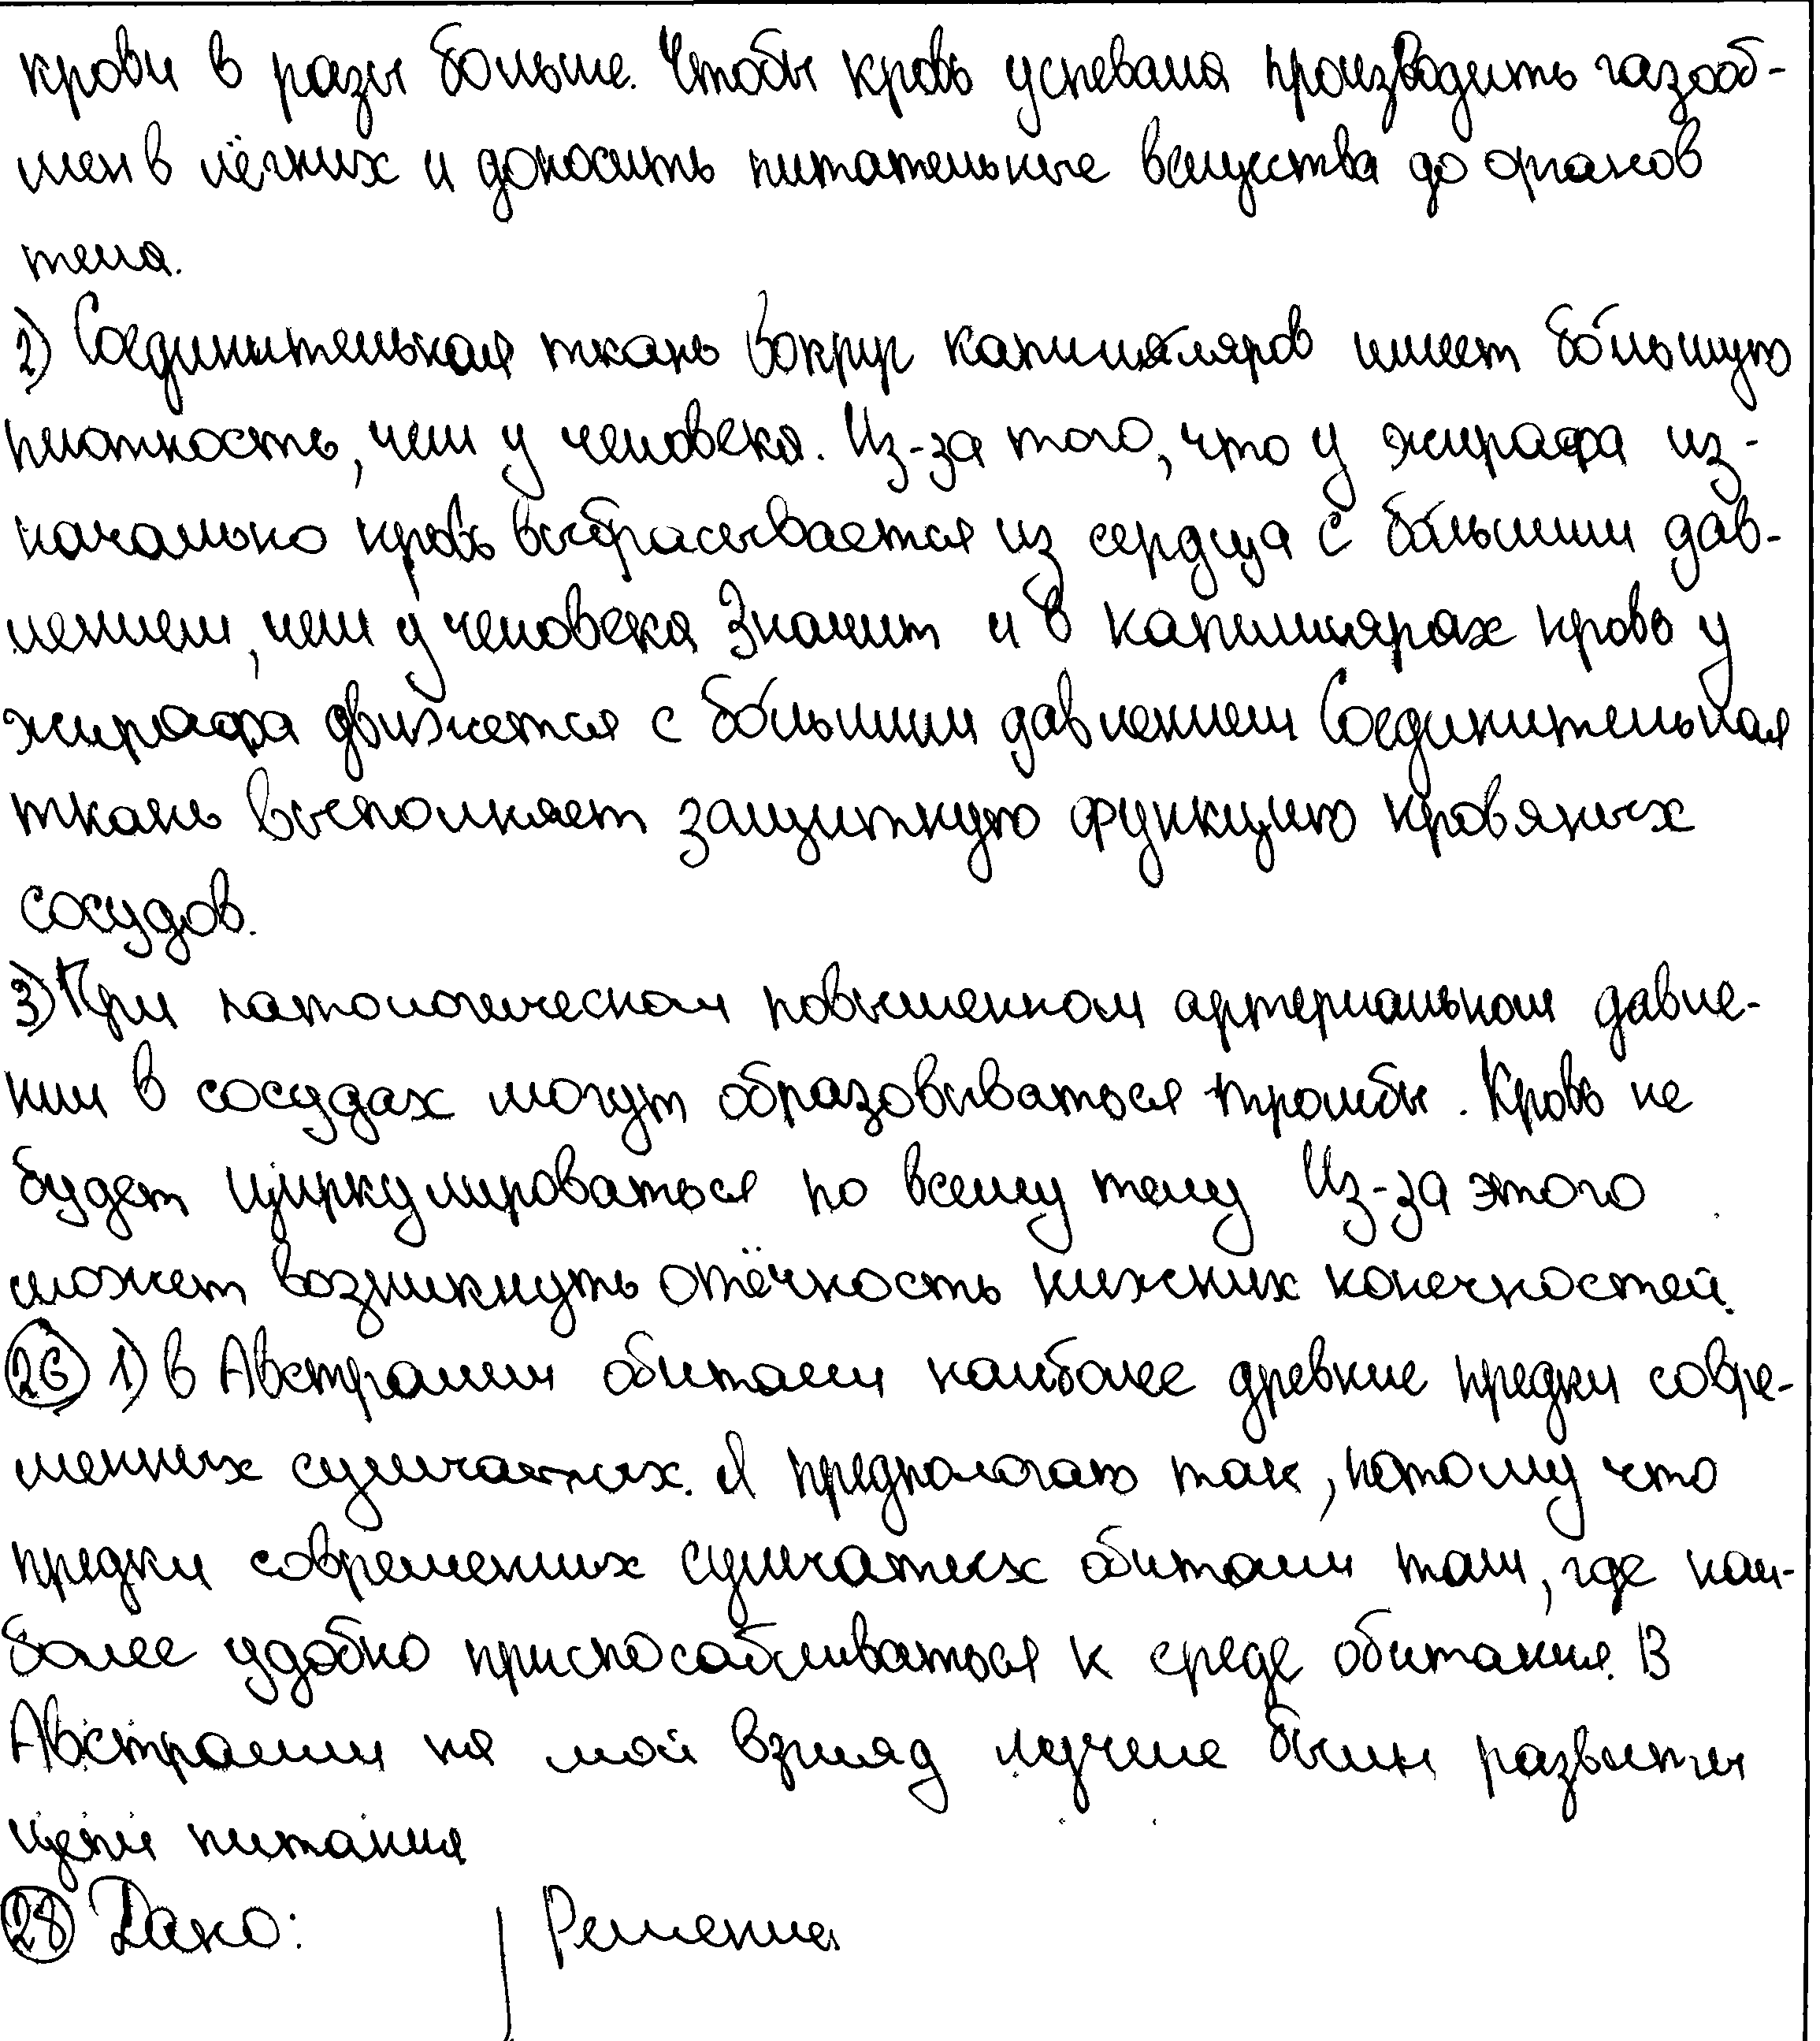 крови в разы больше. Чтобы кровь успевала производить газооб-
мен в лёгких и доносить питательные вещества до органов
тела.
2) Соединительная ткань вокруг капилляров имеет бо́льшую
плотность, чем у человека. Из-за того, что у жирафа из-
начально кровь выбрасывается из сердца с бо́льшим дав-
лением, чем у человека Значит и в капиллярах кровь у
жирафа движется с бо́льшим давлением Соединительная
ткань выполняет защитную функцию кровяных
сосудов.
3) При патологическом повышенном артериальном давле-
нии в сосудах могут образовываться тромбы. Кровь не
будет циркулироваться по всему телу Из-за этого
может возникнуть отёчность нижних конечностей.
26 1) в Австралии обитали наиболее древние предки совре-
менных сумчатых. Я предпологаю так, потому что
предки современных сумчатых обитали там, где наи-
более удобно приспосабливаться к среде обитания. В
Австралии на мой взгляд лучше были развиты
цепи питания
28 Дано: Решение